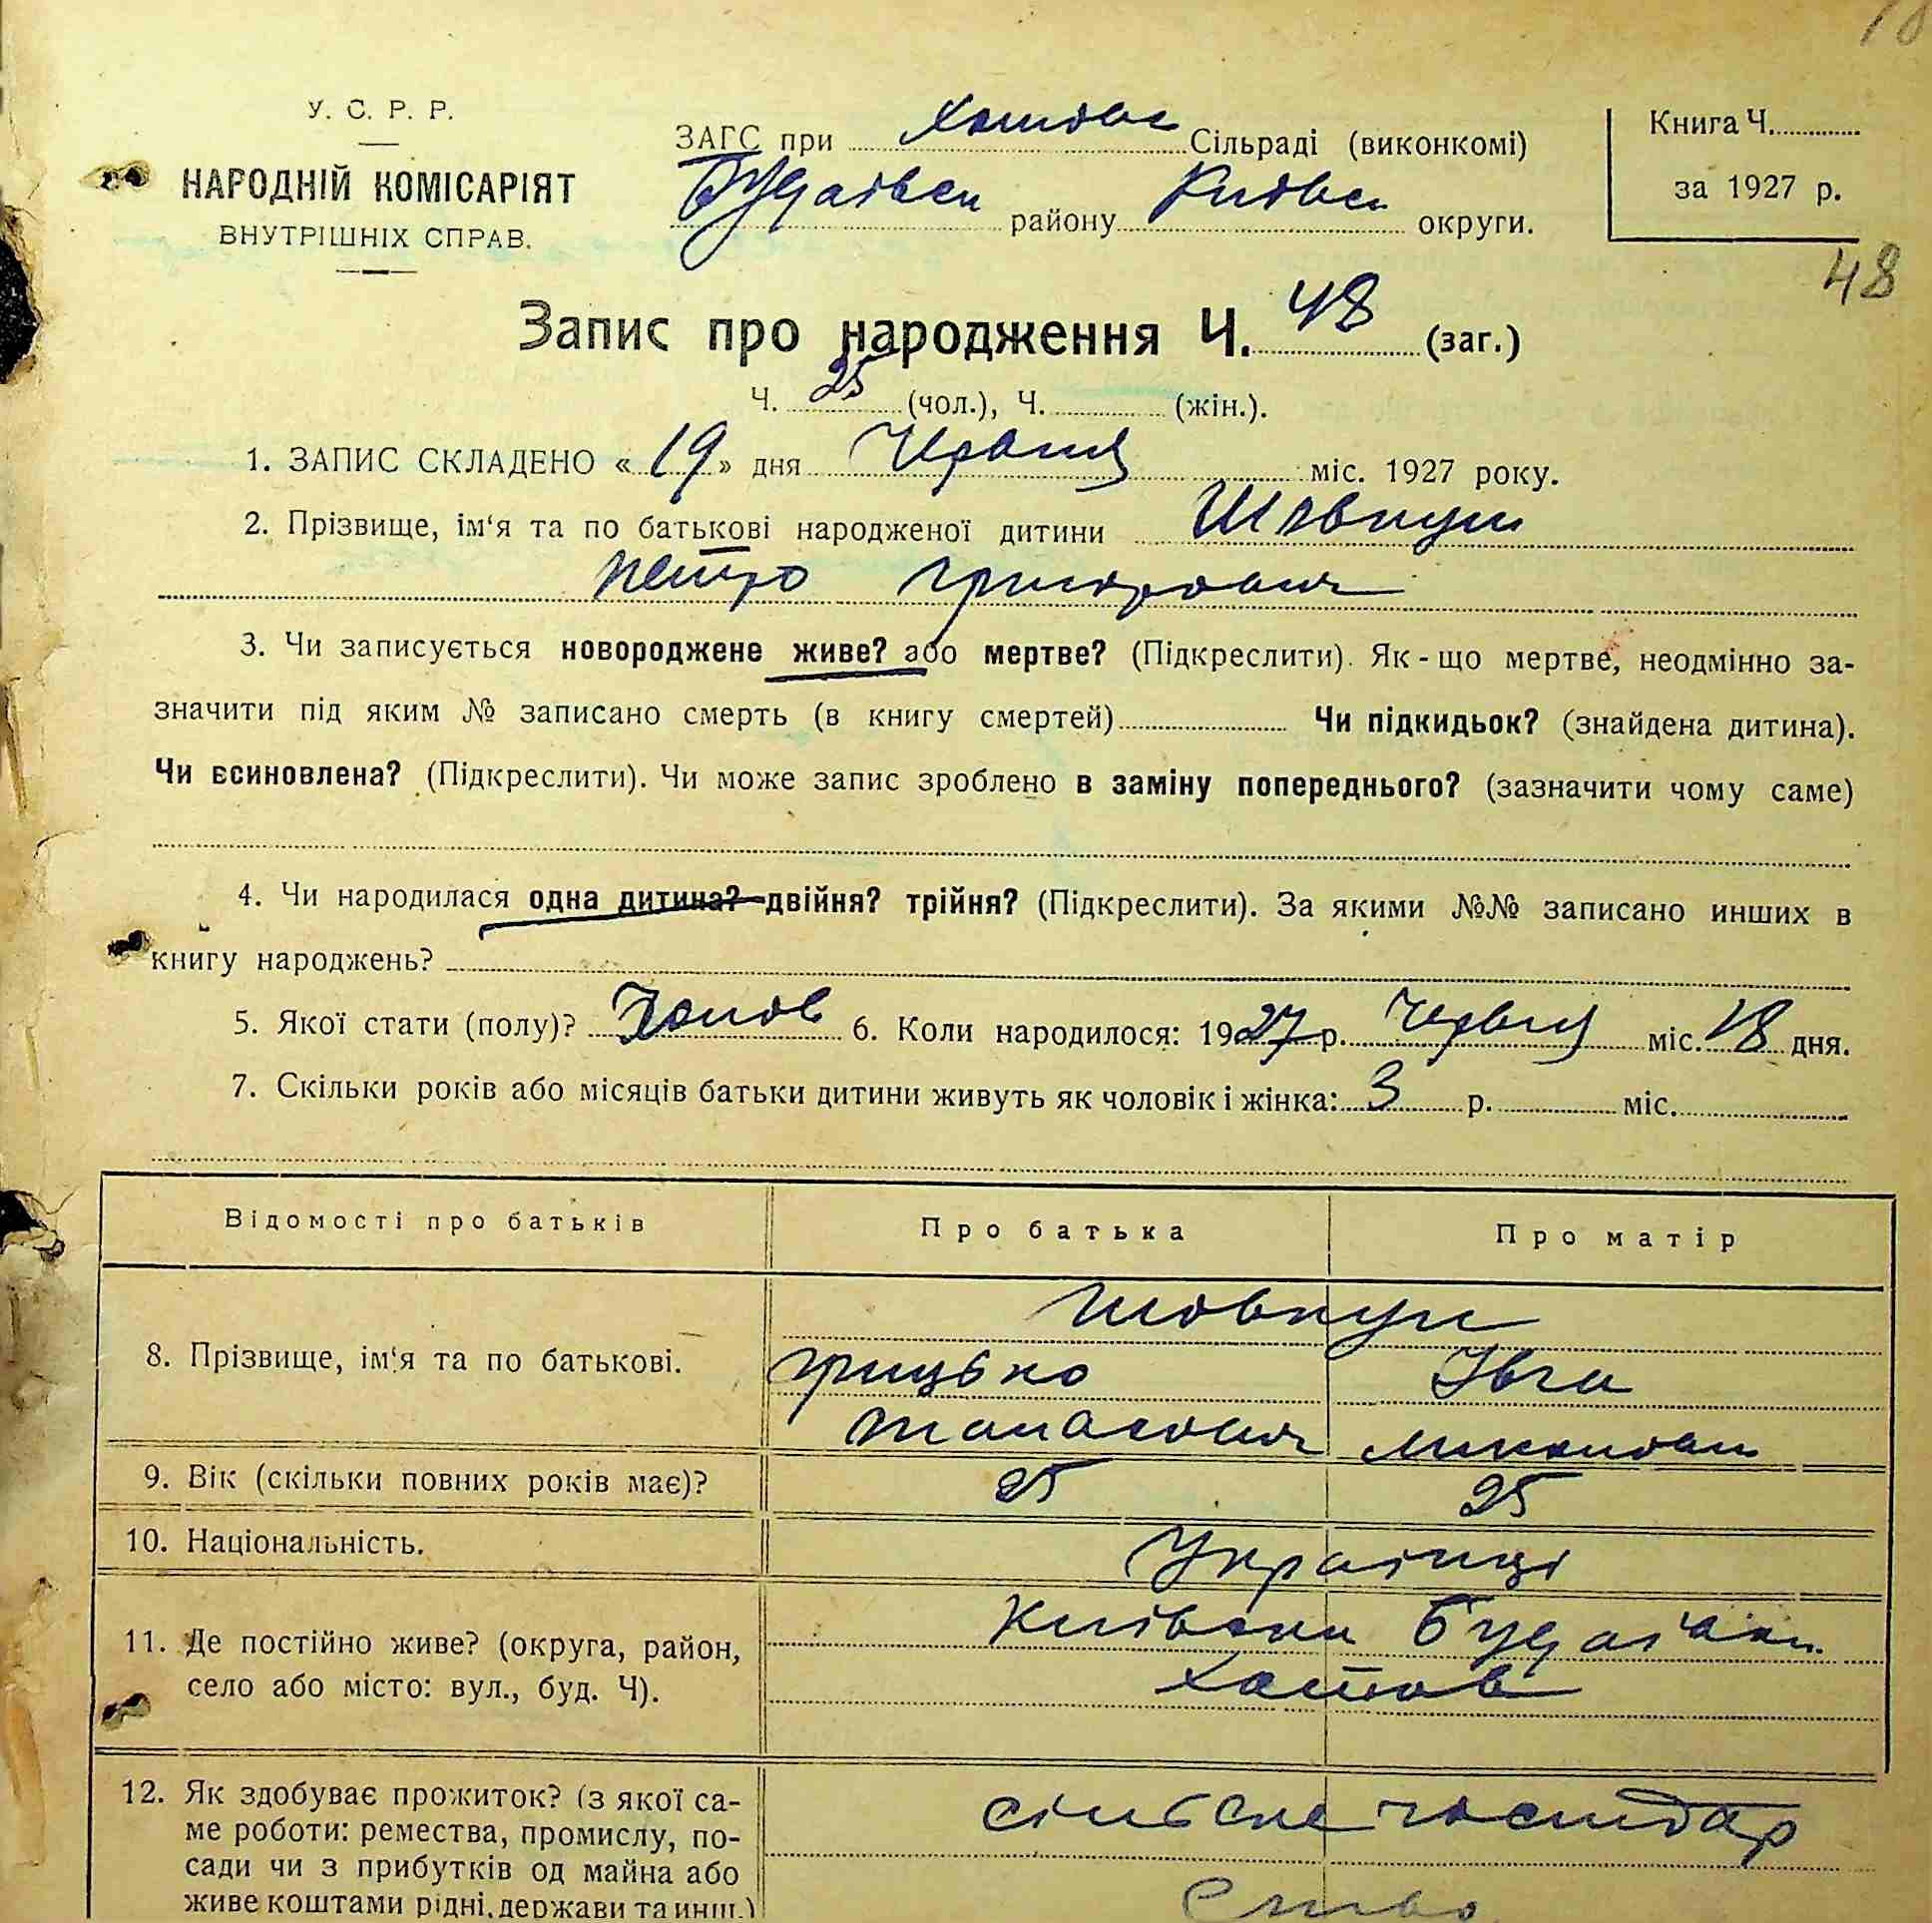 18
У. С. Р. Р.
НАРОДНІЙ КОМІСАРІЯТ
ВНУТРІШНІХ СПРАВ.
ЗАГС при Хотівс Сільраді (виконкомі)
Будаївськ району Київськ округи.
Книга Ч.
за 1927 р.
48
Запис про народження Ч. 48 (заг.)
Ч. 25 (чол.), Ч. (жін.).
1. ЗАПИС СКЛАДЕНО «19» дня Червня міс. 1927 року.
2. Прізвище, ім‘я та по батькові народженої дитини Шовкун
Петро Григорович
3. Чи записується новороджене живе? або мертве? (Підкреслити). Як-що мертве, неодмінно за-
значити під яким № записано смерть (в книгу смертей) Чи підкидьок? (знайдена дитина).
Чи всиновлена? (Підкреслити). Чи може запис зроблено в заміну попереднього? (зазначити чому саме)
4. Чи народилася одна дитина? двійня? трійня? (Підкреслити). За якими №№ записано инших в
книгу народжень?
5. Якої стати (полу)? 6. Коли народилося: 1927 р. Червня міс. 18 дня.
7. Скільки років або місяців батьки дитини живуть як чоловік і жінка: 3 р. міс.
Відомості про батьків Про батька Про матір
8. Прізвище, ім‘я та по батькові. Шовкун
Грицько Івга
Танасович Миколаївн
9. Вік (скільки повних років має)? 25 25
10. Національність. Українці
11. Де постійно живе? (округа, район, село або місто: вул., буд. Ч). Київськи Будаївськ
Хотів
12. Як здобуває прожиток? (з якої са-
ме роботи: ремества, промислу, по-
сади чи з прибутків од майна або
живе коштами рідні, держави та инш.)
сільске господар
ство